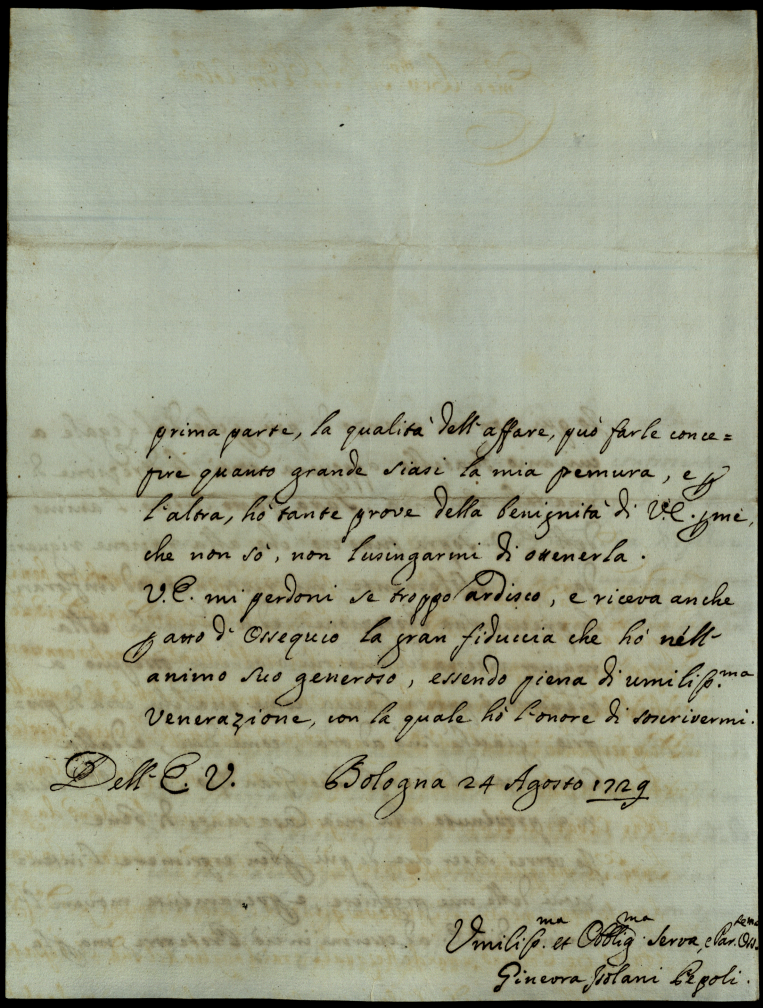 prima parte, la qualità dell'affare, può farle conce=
pire quanto grande siasi la mia premura, e p
l'altra, hò tante prove della benignità di V.E. p me,
che non sò, non lusingarmi di ottenerla.
V.E. mi perdoni se troppo ardisco, e riceva anche
p atto d'Ossequio la gran fiduccia che hò nell'
animo suo generoso, essendo piena di umiliss.ma
Venerazione, con la quale hò l'onore di soscrivermi.
Dell'E.V. Bologna 24 Agosto 1729
Umiliss.ma et Obblig.ma Serva, e Par.
Ginevra Isolani Pepoli.